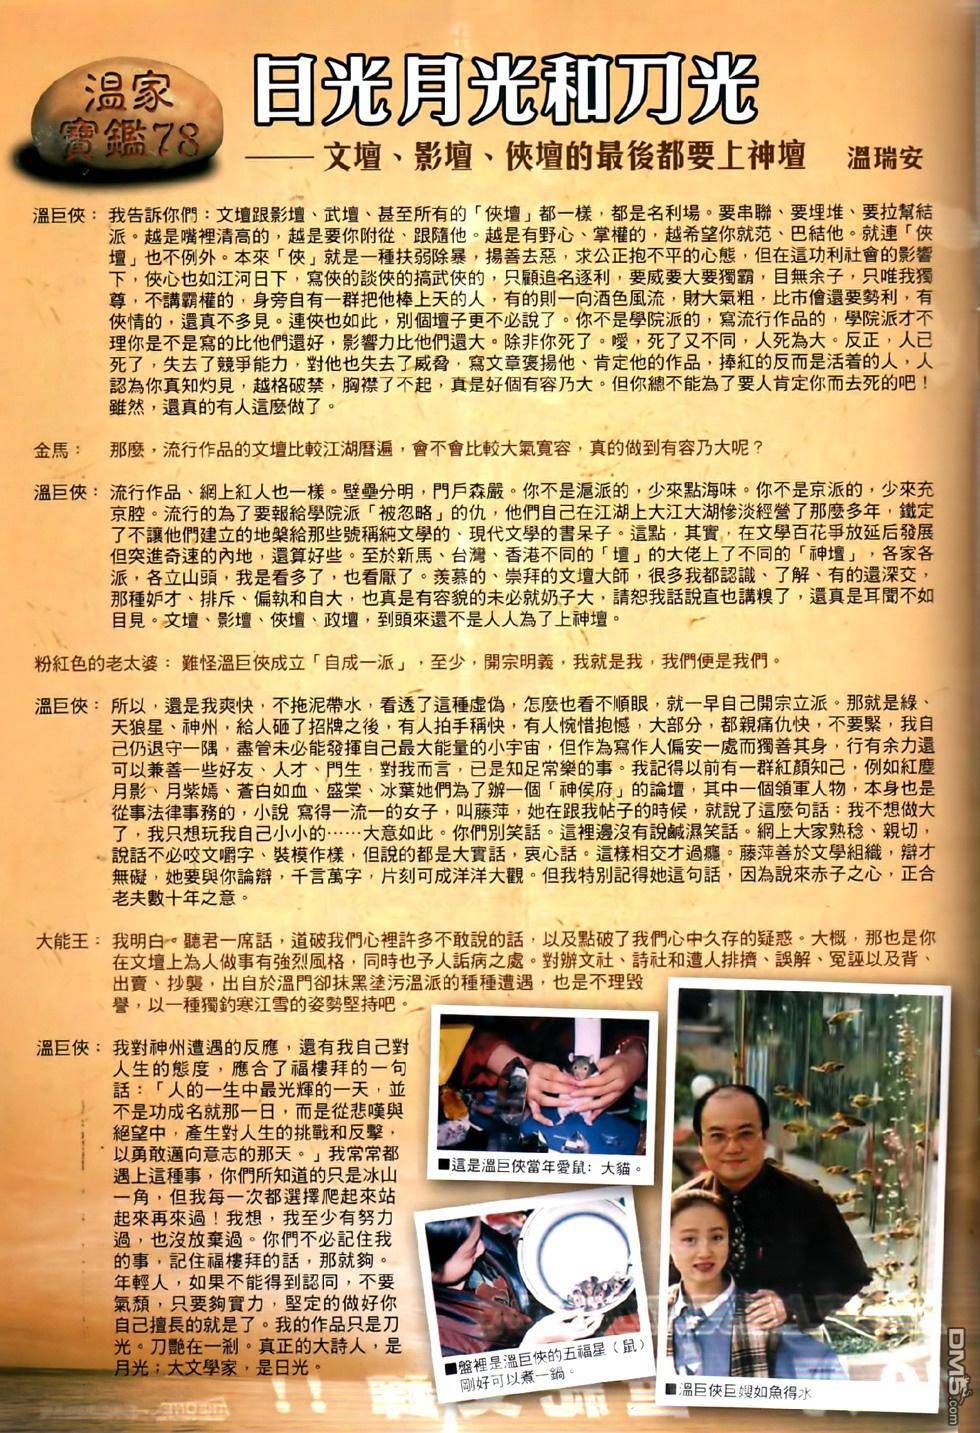 溫家
寶鑑78
日光月光和刀光
——文壇、影壇、俠壇的最後都要上神壇 溫瑞安
溫巨俠：我告訴你們：文壇跟影壇、武壇、甚至所有的「俠壇」都一樣，都是名利場。要串聯、要埋堆、要拉幫結
派。越是嘴裡清高的，越是要你附從、跟隨他。越是有野心、掌權的，越希望你就范、巴結他。就連「俠
壇」也不例外。本來「俠」就是一種扶弱除暴，揚善去惡，求公正抱不平的心態，但在這功利社會的影響
下，俠心也如江河日下，寫俠的談俠的搞武俠的，只顧追名逐利，要威要大要獨霸，目無余子，只唯我獨
尊，不講霸權的，身旁自有一群把他棒上天的人，有的則一向酒色風流，財大氣粗，比市儈還要勢利，有
俠情的，還真不多見。連俠也如此，別個壇子更不必說了。你不是學院派的，寫流行作品的，學院派才不
理你是不是寫的比他們還好，影響力比他們還大。除非你死了。噯，死了又不同，人死為大。反正，人已
死了，失去了競爭能力，對他也失去了威脅，寫文章褒揚他、肯定他的作品，捧紅的反而是活着的人，人
認為你真知灼見，越格破禁，胸襟了不起，真是好個有容乃大。但你總不能為了要人肯定你而去死的吧！
雖然，還真的有人這麼做了。
金馬： 那麼，流行作品的文壇比較江湖曆遍，會不會比較大氣寬容，真的做到有容乃大呢？
溫巨俠：流行作品、網上紅人也一樣。壁壘分明，門戶森嚴。你不是滬派的，少來點海味。你不是京派的，少來充
京腔。流行的為了要報給學院派「被忽略」的仇，他們自己在江湖上大江大湖慘淡經營了那麼多年，鐵定
了不讓他們建立的地槃給那些號稱純文學的、現代文學的書呆子。這點，其實，在文學百花爭放延后發展
但突進奇速的內地，還算好些。至於新馬、台灣、香港不同的「壇」的大佬上了不同的「神壇」，各家各
派，各立山頭，我是看多了，也看厭了。羨慕的、崇拜的文壇大師，很多我都認識、了解、有的還深交，
那種妒才、排斥、偏執和自大，也真是有容貌的未必就奶子大，請恕我話說直也講糗了，還真是耳聞不如
目見。文壇、影壇、俠壇、政壇，到頭來還不是人人為了上神壇。
粉紅色的老太婆：難怪溫巨俠成立「自成一派」，至少，開宗明義，我就是我，我們便是我們。
溫巨俠：所以，還是我爽快，不拖泥帶水，看透了這種虛偽，怎麼也看不順眼，就一早自己開宗立派。那就是綠、
天狼星、神州，給人砸了招牌之後，有人拍手稱快，有人惋惜抱憾，大部分，都親痛仇快，不要緊，我自
己仍退守一隅，盡管未必能發揮自己最大能量的小宇宙，但作為寫作人偏安一處而獨善其身，行有余力還
可以兼善一些好友、人才、門生，對我而言，已是知足常樂的事。我記得以前有一群紅顏知己，例如紅塵
月影、月紫嫣、蒼白如血、盛棠、冰葉她們為了辦一個「神侯府」的論壇，其中一個領軍人物，本身也是
從事法律事務的，小說 寫得一流一的女子，叫藤萍，她在跟我帖子的時候，就說了這麼句話：我不想做大
了，我只想玩我自己小小的……大意如此。你們別笑話。這裡邊沒有說鹹濕笑話。網上大家熟稔、親切，
說話不必咬文嚼字、裝模作樣，但說的都是大實話，衷心話。這樣相交才過癮。藤萍善於文學組織，辯才
無礙，她要與你論辯，千言萬字，片刻可成洋洋大觀。但我特別記得她這句話，因為說來赤子之心，正合
老夫數十年之意。
大能王：我明白。聽君一席話，道破我們心裡許多不敢說的話，以及點破了我們心中久存的疑惑。大概，那也是你
在文壇上為人做事有強烈風格，同時也予人詬病之處。對辦文社、詩社和遭人排擠、誤解、冤誣以及背、
出賣、抄襲，出自於溫門卻抹黑塗污溫派的種種遭遇，也是不理毀
譽，以一種獨釣寒江雪的姿勢堅持吧。
溫巨俠：我對神州遭遇的反應，還有我自己對
人生的態度，應合了福樓拜的一句
話：「人的一生中最光輝的一天，並
不是功成名就那一日，而是從悲嘆與
絕望中，產生對人生的挑戰和反擊，
以勇敢邁向意志的那天。」我常常都
遇上這種事，你們所知道的只是冰山
一角，但我每一次都選擇爬起來站
起來再來過！我想，我至少有努力
過，也沒放棄過。你們不必記住我
的事，記住福樓拜的話，那就夠。
年輕人，如果不能得到認同，不要
氣頹，只要夠實力，堅定的做好你
自己擅長的就是了。我的作品只是刀
光。刀艷在一剎。真正的大詩人，是
月光；大文學家，是日光。
■這是溫巨俠當年愛鼠：大貓。
■盤裡是溫巨俠的五福星（鼠）
剛好可以煮一鍋。
■溫巨俠巨嫂如魚得水
DM5.com